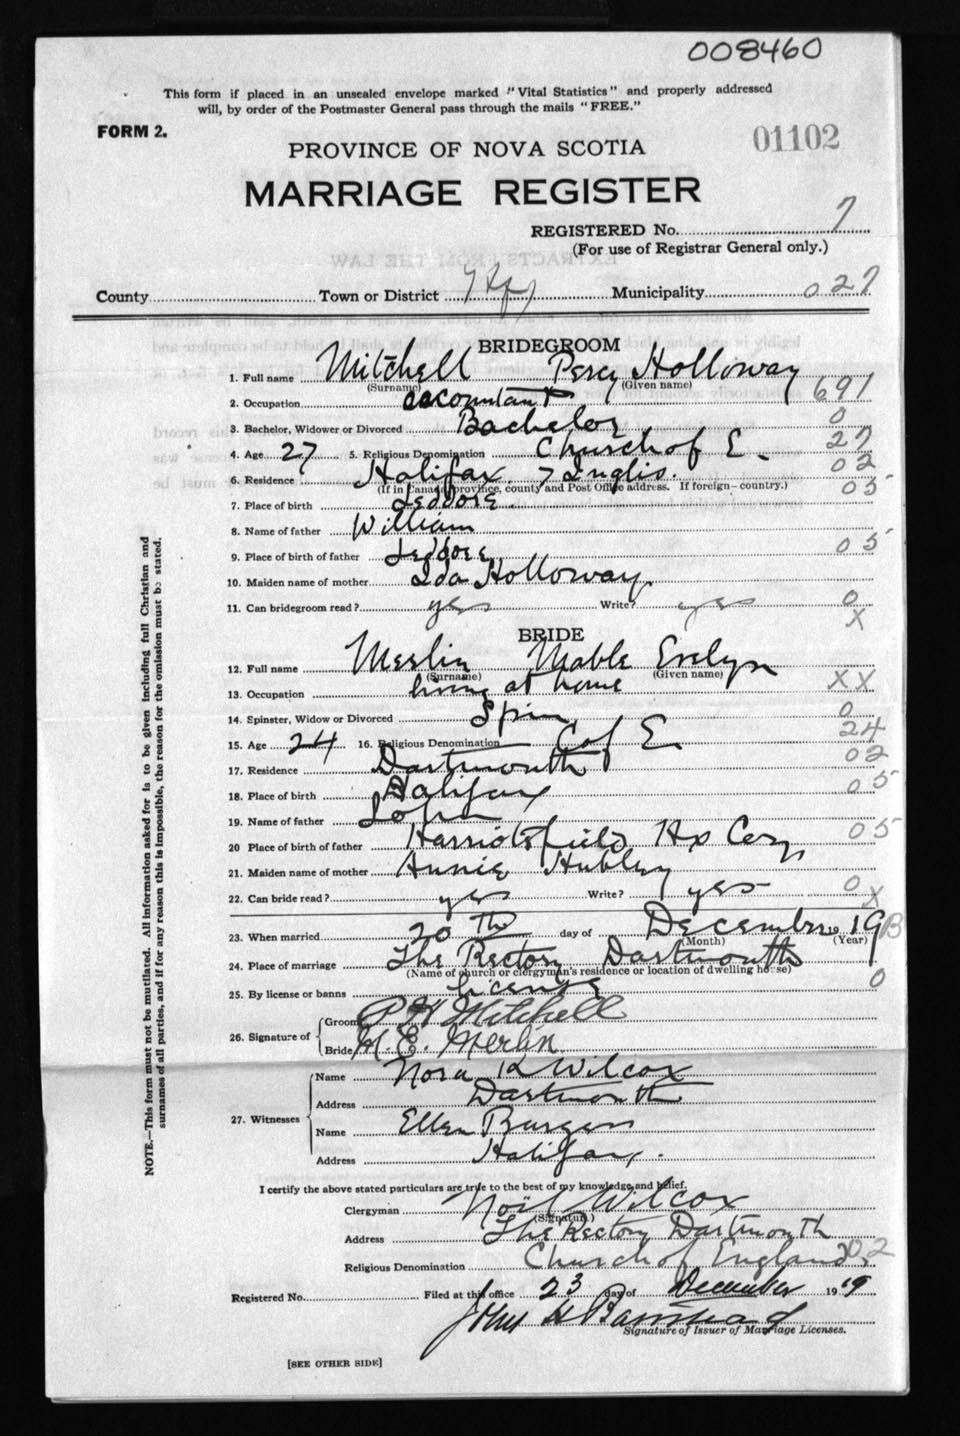 008460
This form if placed in an unsealed envelope marked "Vital Statistics" and properly addressed
will, by order of the Postmaster General pass through the mails "FREE."
FORM 2.
01102
PROVINCE OF NOVA SCOTIA
MARRIAGE REGISTER
REGISTERED No. 7
(For use of Registrar General only.)
County Town or District Municipality 027
BRIDEGROOM
1. Full name Mitchell Percy Holloway
(Surname) (Given name)
2. Occupation accountant 691
3. Bachelor, Widower or Divorced Bachelor 0
4. Age 27 5. Religious Denomination Church of E. 27
6. Residence Halifax 7 Inglis. 02
(If in Canada, province, county and Post Office address. If foreign—country.)
7. Place of birth Jeddore 05
8. Name of father William
9. Place of birth of father Jeddore 05
10. Maiden name of mother Ida Holloway.
11. Can bridegroom read? yes Write? yes 0
X
BRIDE
12. Full name Merlin Mable Evelyn
(Surname) (Given name)
13. Occupation living at home XX
14. Spinster, Widow or Divorced Spin 0
15. Age 24 16. Religious Denomination C of E. 24
17. Residence Dartmouth 02
18. Place of birth Halifax 05
19. Name of father John
20 Place of birth of father Harrietsfield Hx Coy 05
21. Maiden name of mother Annie Hubley
22. Can bride read? yes Write? yes 0
X
23. When married 20th day of December 19 19
(Month) (Year)
24. Place of marriage The Rectory Dartmouth
(Name of church or clergyman's residence or location of dwelling house)
25. By license or banns license 0
26. Signature of Groom P H Mitchell
Bride M. E. Merlin
27. Witnesses Name Nora K Wilcox
Address Dartmouth
Name Ellen Burgess
Address Halifax.
I certify the above stated particulars are true to the best of my knowledge and belief.
Clergyman Noel Wilcox
(Signature)
Address The Rectory Dartmouth
Religious Denomination Church of England 202
Registered No. Filed at this office 23 day of December 1919
John H
Signature of Issuer of Marriage Licenses.
[SEE OTHER SIDE]
NOTE.—This form must not be mutilated. All information asked for is to be given including full Christian and
surnames of all parties, and if for any reason this is impossible, the reason for the omission must be stated.